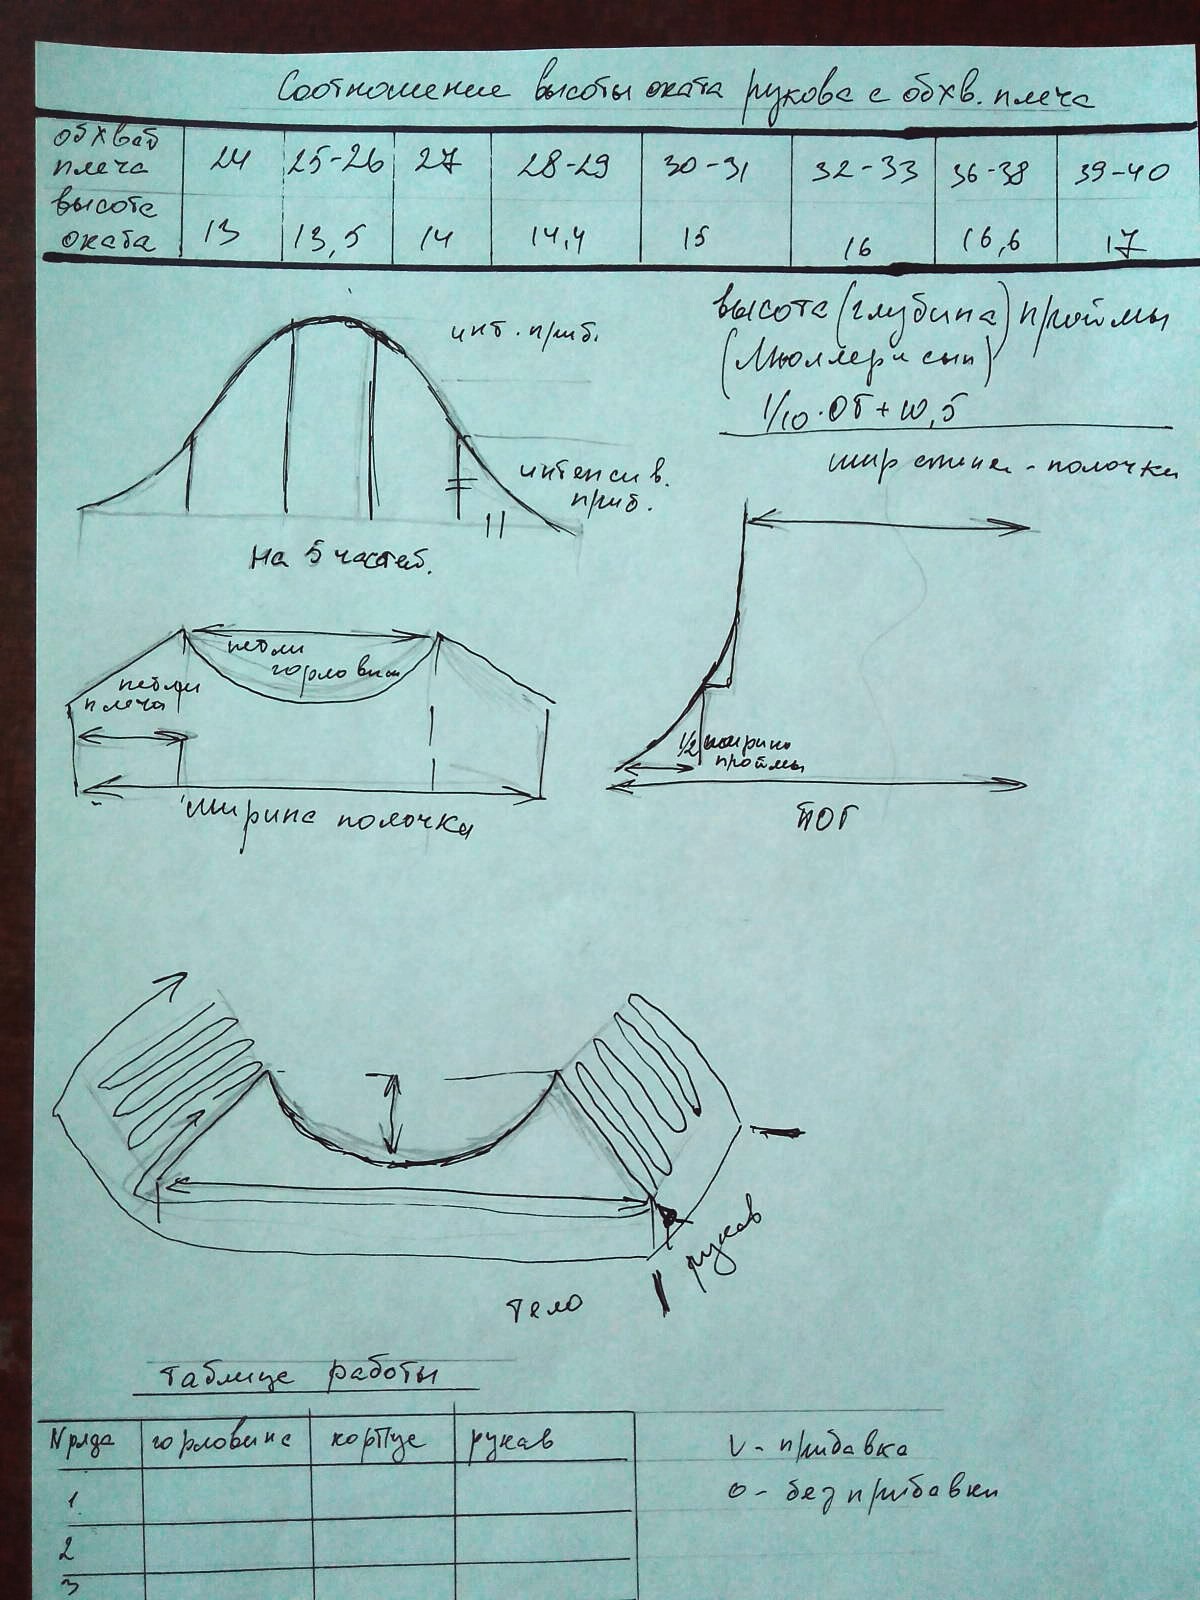 Соотношение высоты оката рукова с обхв. плеча
обхват плеча 24 25-26 27 28-29 30-31 32-33 36-38 39-40
высота оката 13 13,5 14 14,4 15 16 16,6 17
высота (глубина) проймы
(Мюллер и сын)
1/10 · ОГ + 10,5
инт. приб.
шир спинки - полочки
интенсив.
приб.
На 5 частей.
петли
горловины
петли
плеча
1/2 ширина
проймы
ширина полочки
ПОГ
рукав
тело
Таблица работы
N ряда горловина корпус рукав
1
2
3
V - прибавка
о - без прибавки